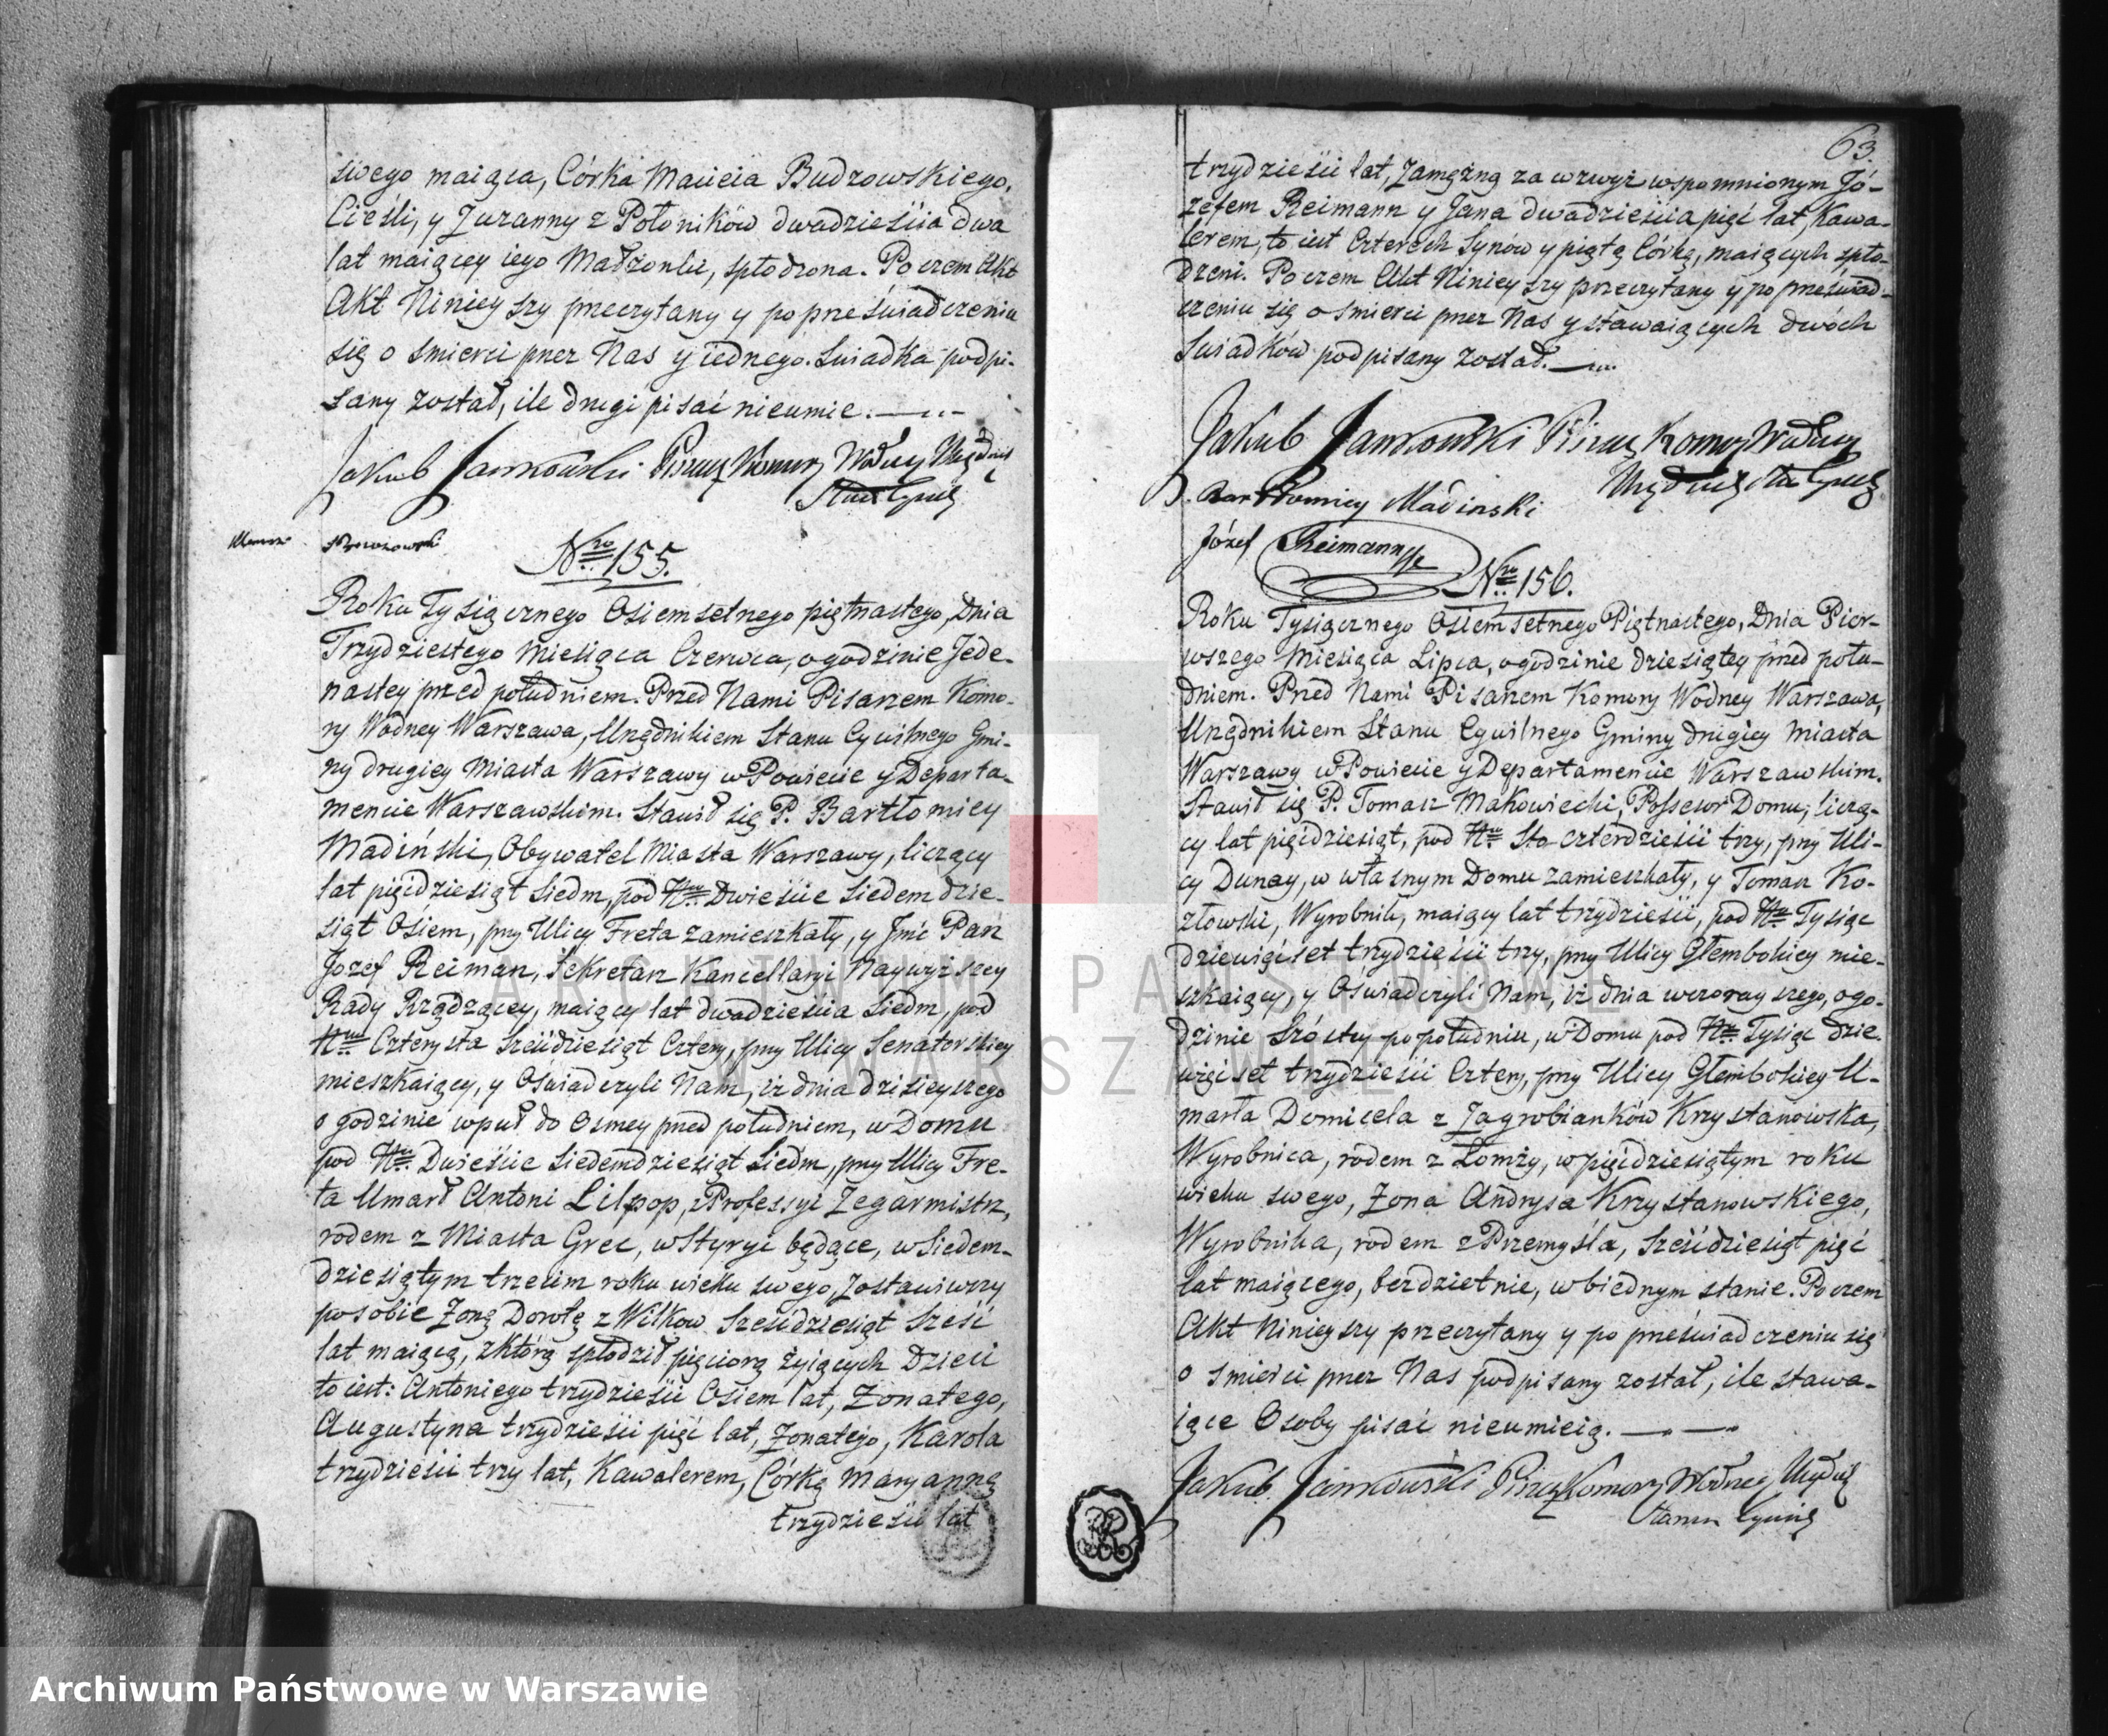 swego maiąca, Córka Macieia Budzowskiego,
Cieśli, y Zuzanny z Połoników dwadzieścia dwa
lat maiącey iego Małżonki, spłodzona. Poczem Akt
Akt Ninieyszy przeczytany y po przeświadczeniu
się o śmierci przez Nas y iednego Swiadka podpi-
sany został, ile drugi pisać nieumie.
Jakub Jankowski Pisarz Komory Wodney Urzędnik
Stanu Cywil
Nro 155.
Roku Tysiącznego Osiemsetnego piętnastego, Dnia
Trzydziestego Miesiąca Czerwca, o godzinie Jede-
nastey przed południem. Przed Nami Pisarzem Komo-
ry Wodney Warszawa, Urzędnikiem Stanu Cywilnego Gmi-
ny drugiey Miasta Warszawy w Powiecie y Departa-
mencie Warszawskim. Stawił się P. Bartłomiey
Madiński, Obywatel Miasta Warszawy, liczący
lat pięćdziesiąt siedm, pod Nrem Dwieście siedemdzie-
siąt Osiem, przy Ulicy Freta zamieszkały, y Jmć Pan
Jozef Reiman, Sekretarz Kancellaryi Naywyższey
Rady Rządzącey, maiący lat dwadzieścia siedm, pod
Nrem Czterysta sześćdziesiąt Cztery, przy Ulicy Senatorskiey
mieszkaiący, y Oświadczyli Nam, iż dnia dzisieyszego
o godzinie wpuł do Osmey przed południem, w Domu
pod Nrem Dwieście Siedemdziesiąt Siedm, przy Ulicy Fre-
ta Umarł Antoni Lilpop, z Professyi Zegarmistrz,
rodem z Miasta Grec, w Styryi będące, w Siedem-
dziesiątym trzecim roku wieku swego, Zostawiwszy
po sobie Żonę Dorotę z Wilkow Sześćdziesiąt Sześć
lat maiącą, z którą spłodził pięciorą żyiących Dzieci
to iest: Antoniego trzydzieści Osiem lat, Żonatego,
Augustyna trzydzieści pięć lat, Żonatego, Karola
trzydzieści trzy lat, Kawalerem, Córkę Maryannę
trzydzieści lat
63.
trzydzieści lat, Zamężną za wzwyż wspomnionym Jó-
zefem Reimann y Jana dwadzieścia pięć lat, Kawa-
lerem, to iest Czterech Synów y piątą Córkę, maiących spło-
dzeni. Poczem Akt Ninieyszy przeczytany y po przeświad-
czeniu się o śmierci przez Nas y stawaiących dwóch
Swiadków podpisany został.
Jakub Jankowski Pisarz Komory Wodney
Urzędnik Stanu Cywil
Bartłomiey Madinski
Józef Reimann
Nro 156.
Roku Tysiącznego Osiemsetnego Piętnastego, Dnia Pier-
wszego Miesiąca Lipca, o godzinie dziesiątey przed połu-
dniem. Przed Nami Pisarzem Komory Wodney Warszawa,
Urzędnikiem Stanu Cywilnego Gminy drugiey Miasta
Warszawy w Powiecie y Departamencie Warszawskim.
Stawił się P. Tomasz Makowiecki, Possesor Domu, liczą-
cy lat pięćdziesiąt, pod Nrem Sto czterdzieści trzy, przy Uli-
cy Dunay, w własnym Domu zamieszkały, y Tomasz Ko-
złowski, Wyrobnik, maiący lat trzydzieści, pod Nrem Tysiąc
dziewięćset trzydzieści trzy, przy Ulicy Głembokiey mie-
szkaiący, y Oświadczyli Nam, iż dnia wczorayszego, o go-
dzinie Szóstey po południu, w Domu pod Nrem Tysiąc dzie-
więćset trzydzieści Cztery, przy Ulicy Głembokiey U-
marła Domicela z Zagrobianków Krzystanowska,
Wyrobnica, rodem z Łomży, w pięćdziesiątym roku
wieku swego, Żona Andrysa Krzystanowskiego,
Wyrobnika, rodem z Przemyśla, Sześćdziesiąt pięć
lat maiącego, bezdzietnie, w biednym stanie. Poczem
Akt Ninieyszy przeczytany y po przeświadczeniu się
o śmierci przez Nas podpisany został, ile stawa-
iące Osoby pisać nieumieią.
Jakub Jankowski Pisarz Komory Wodney Urzędnik
Stanu Cywil
ARCHIWUM PAŃSTWOWE
W WARSZAWIE
Archiwum Państwowe w Warszawie